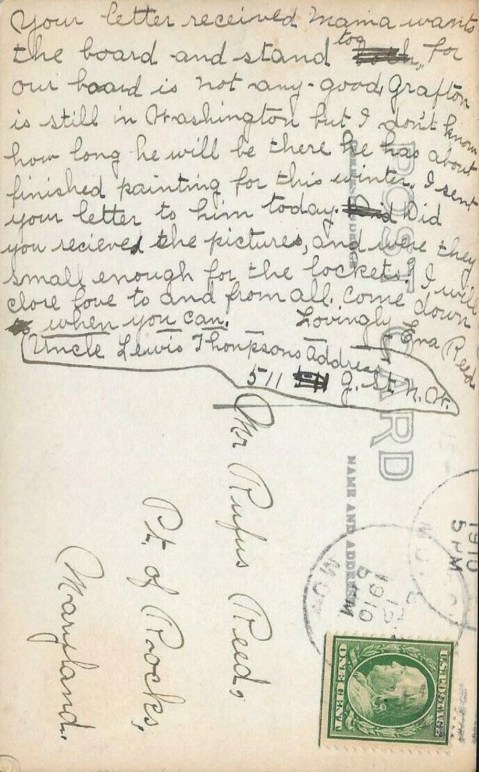 Your letter received Mama wants
the board and stand too, for
our board is not any-good, Grafton
is still in Washington but I don't know
how long he will be there he has about
finished painting for this winter. I sent
your letter to him today. Did
you recieved the pictures, and were they
small enough for the lockets? I will
close love to and from all. Come down
when you can. Lovingly Edna Reed
Uncle Lewis Thompsons Address
511 G. St N.W.
POST CARD
NAME AND ADDRESS
Mr Rufus Reed,
Pt. of Rocks,
Maryland.
1910
5 PM
MD.
1910
M
MD.
U.S. POSTAGE
ONE CENT